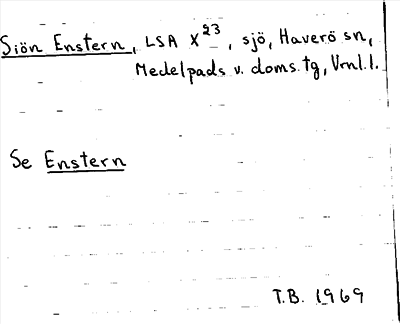 Siön Enstern, LSA X 23, sjö, Haverö sn,
Medelpads v. doms.tg, Vrnl.l.
Se Enstern
T.B. 1969